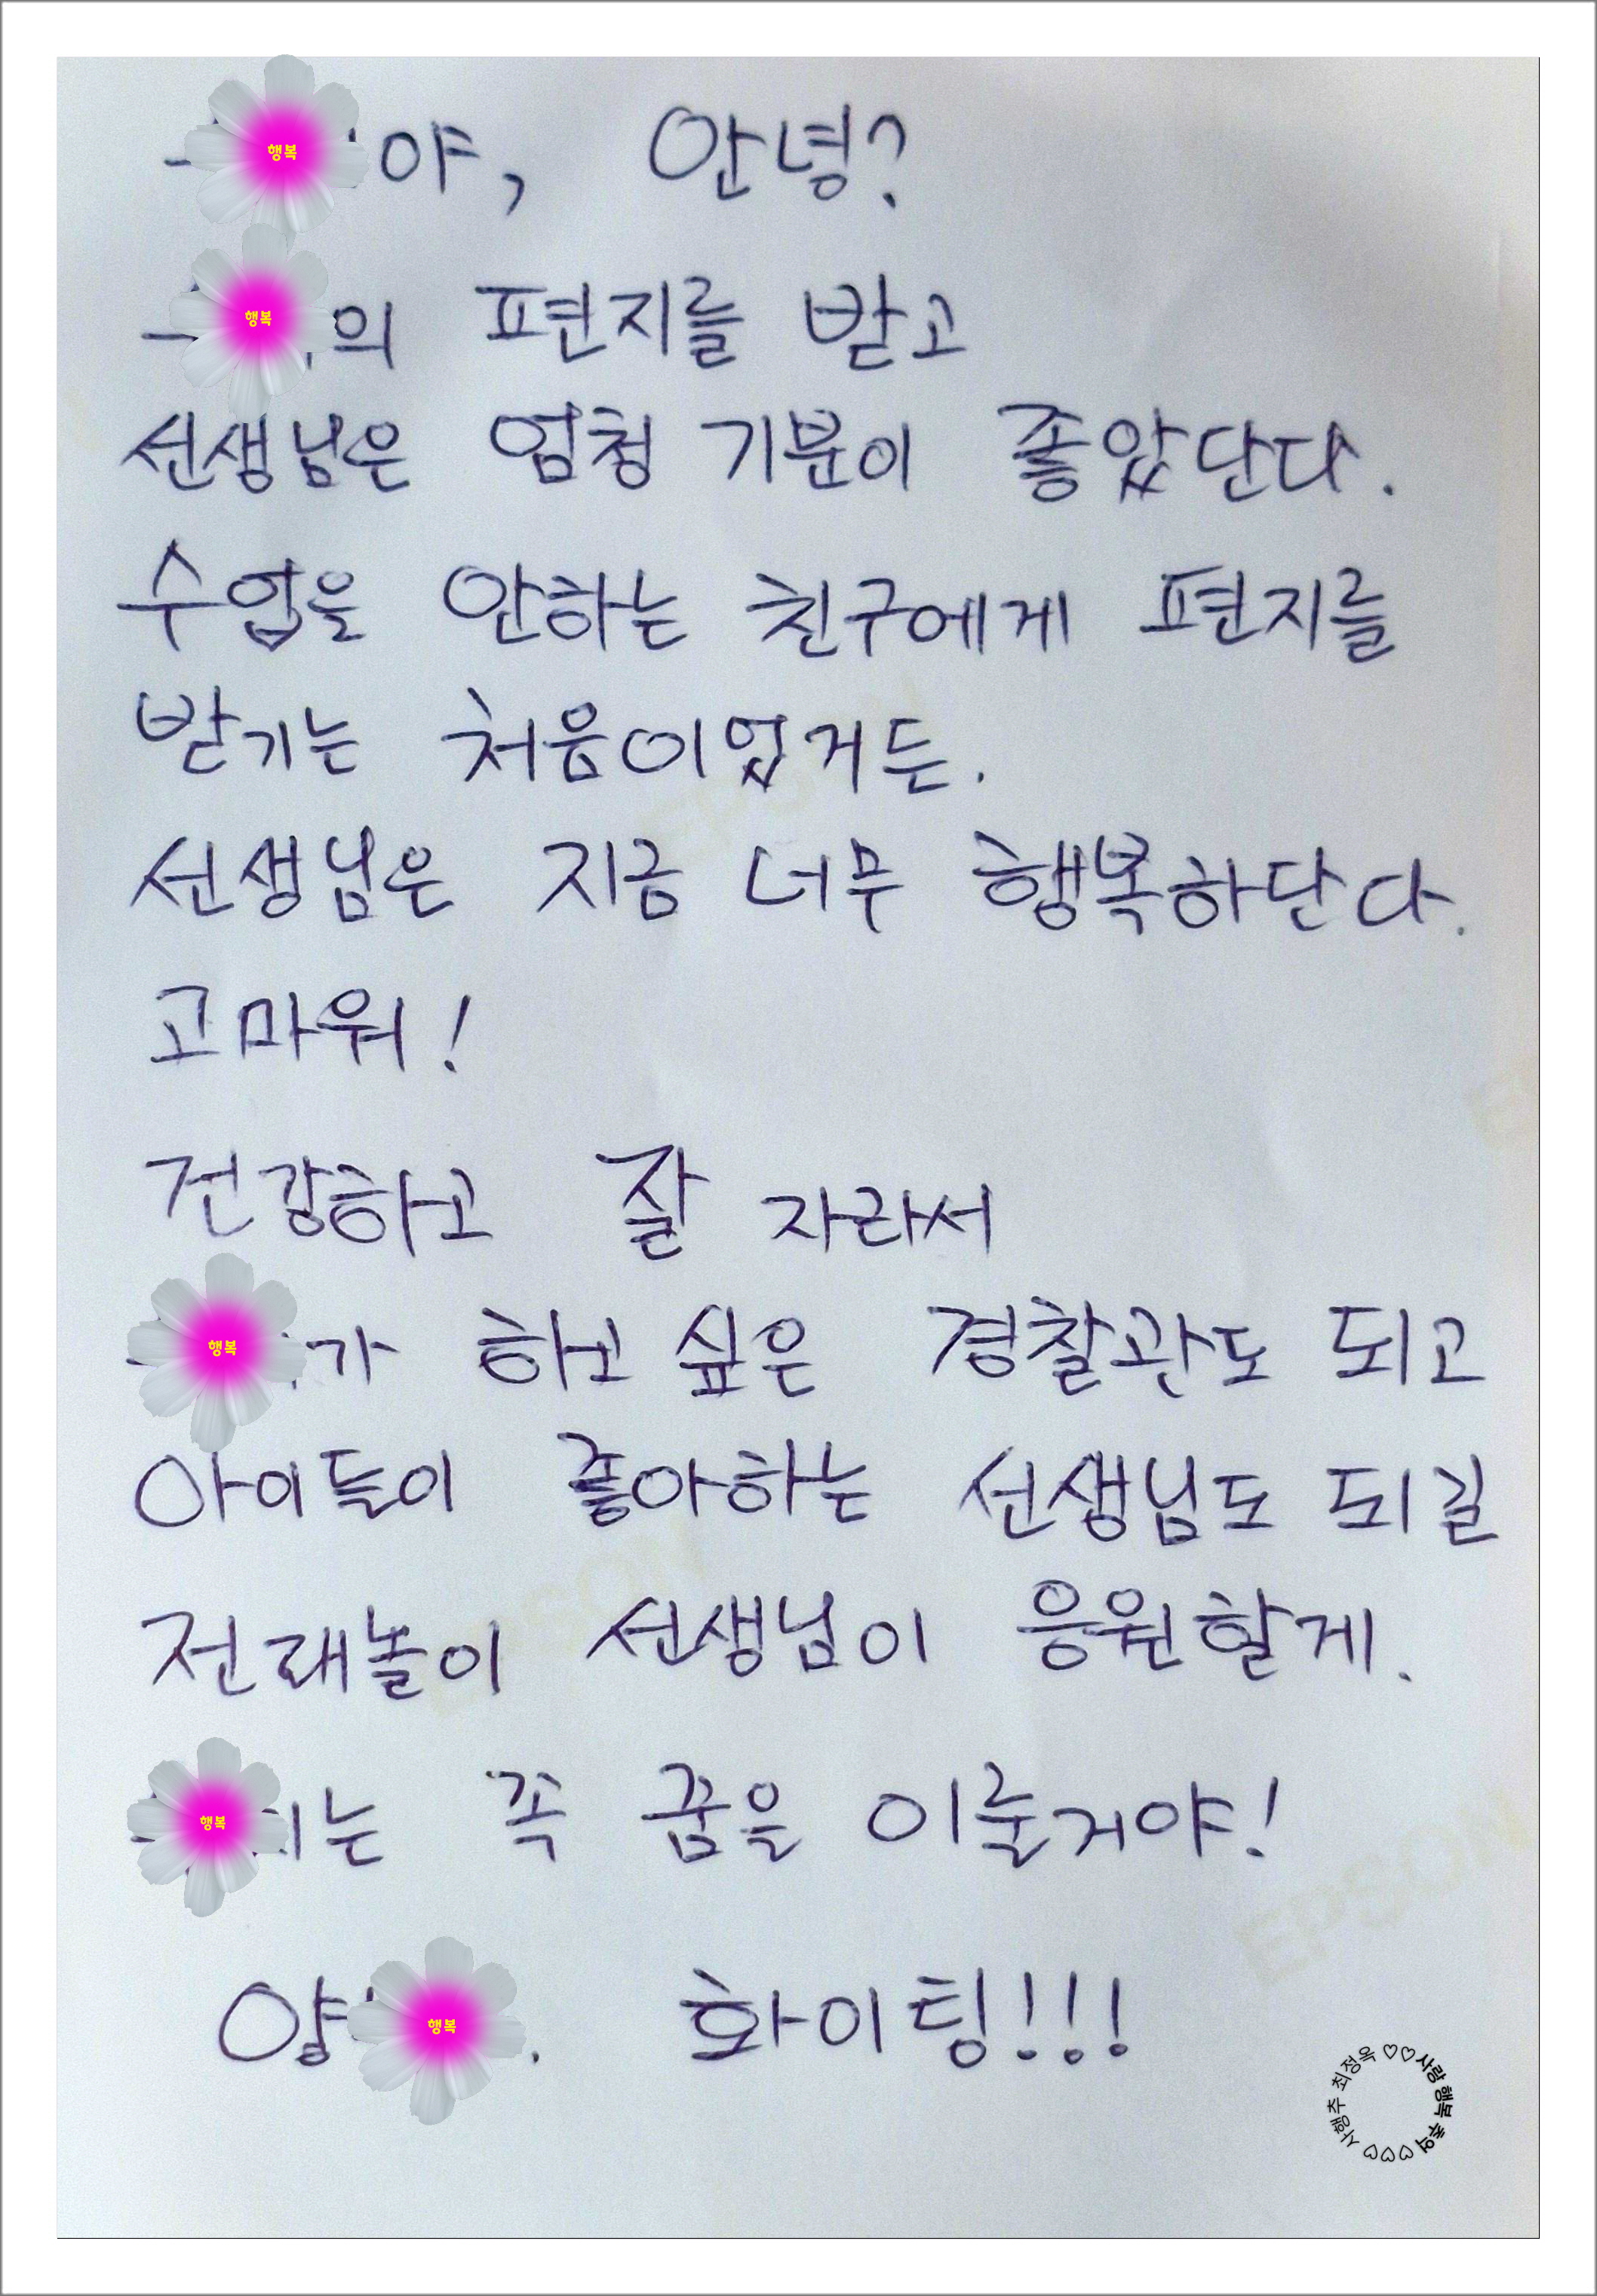 야, 안녕?
행복
의 편지를 받고
행복
선생님은 엄청 기분이 좋았단다.
수업을 안하는 친구에게 편지를
받기는 처음이었거든.
선생님은 지금 너무 행복하단다.
고마워!
건강하고 잘 자라서
가 하고 싶은 경찰관도 되고
행복
아이들이 좋아하는 선생님도 되길
전래놀이 선생님이 응원할게.
는 꼭 꿈을 이룰거야!
행복
양 . 화이팅!!!
행복
사행추 최정옥 ♡♡사랑 행복 추억 ♡♡♡
EPSON